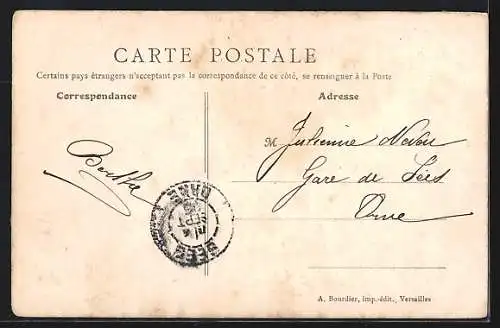 CARTE POSTALE
Certains pays étrangers n'acceptent pas la correspondance de ce côté, se renseigner à la Poste
Correspondance
Adresse
M Julienne
Gare de Sées
Orne
Berthe
ORNE
SEPT
SEES
A. Bourdier, imp.-édit., Versailles